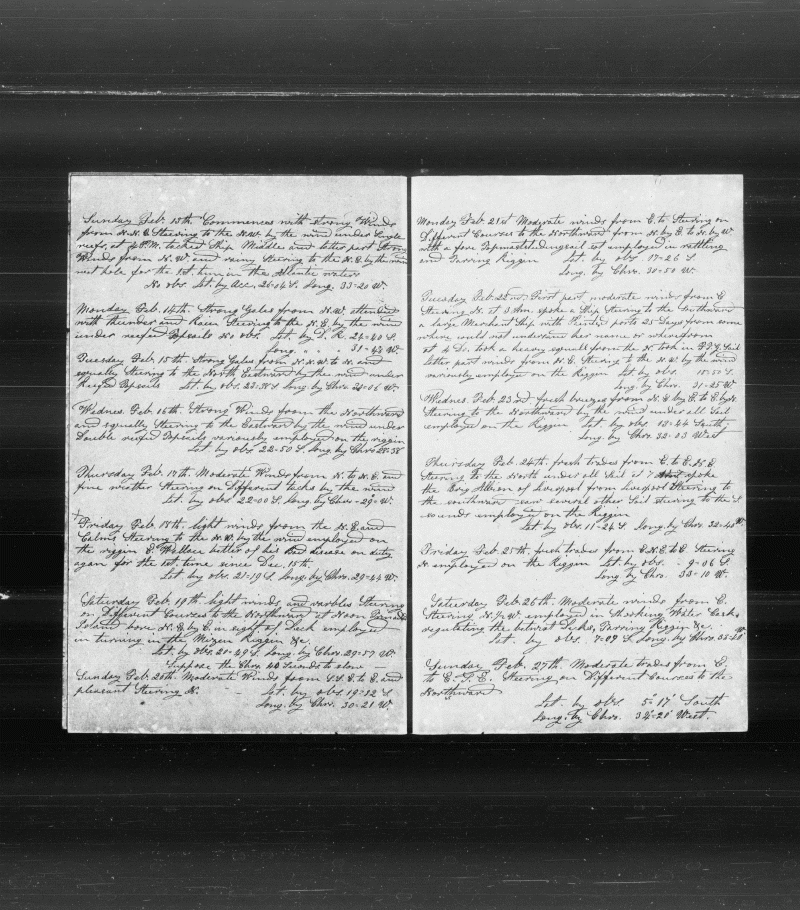 Sunday Feb. 13th Commences with strong Winds
from N.N.E Steering to the N.W. by the wind under Single
reefs, at 4 P.M. tacked Ship Middle and latter part Strong
Winds from N.W. and rainy Steering to the N.E. by the wind
hole for the 1st. time in the Atlantic waters
No obs Lat. by Acc. 26-04 S. Long. 33-20 W.
Monday Feb. 14th. Strong Gales from N.W. attended
with thunder and Rain Steering to the N.E. by the wind
under reefed Topsails No obs. Lat. by D. R. 24-40 S.
Long. " " " 31-44 W.
Tuesday Feb. 15th Strong Gales from N.N.W. to N. and
squally Steering to the North Eastward by the wind under
Reefed Topsails Lat. by obs. 23- S Long. by Chro. -06 W.
Wednes. Feb. 16th. Strong Winds from the Northward
and squally Steering to the Eastward by the wind under
Double reefed Topsails variously employed on the riggin
Lat. by obs. 22-50 S. Long. by Chro 28-38
Thursday Feb. 17th. Moderate Winds from N. to N.E. and
fine weather Steering on Different tacks by the wind
Lat. by obs 22-00 S. Long. by Chro - 29° W.
Friday Feb. 18th. light winds from the N.E. and
Calms Steering to the N.W. by the wind employed on
the riggin E. Wallace better of his disease on duty
again for the 1st. time since Dec. 15th.
Lat. by obs 21-19 S Long. by Chro. 29-44 W.
Saturday Feb. 19th. light winds and varbles Steering
on Different Courses to the Northward at Noon
Island bore N. by E. in sight of Deck employed
in turning in the Mizen Riggin &c.
Lat. by obs. 20-49 S Long. by Chro. 29-57 W.
Suppose the Chro. 40 Seconds to slow —
Sunday Feb. 20th. Moderate Winds from S.S.E. to E. and
pleasant Steering N. Lat. by obs 19-12 S
Long. by Chro. 30-21 W.
Monday Feb. 21st Moderate winds from E. to Steering on
Different Courses to the Northward from N. by E. to N. by W.
with a fore Topmast employed in rattling
and Tarring Riggin Lat. by obs 17-26 S
Long. by Chro. 30-50 W.
Tuesday Feb. 22nd. First part moderate winds from E
Steering N. at 3 Am. spoke a Ship Steering to the Southward
a large Merchant Ship with ports 25 Days from some
where could not understan her name or wherefrom
at 4 Do. took a heavy squall from the N. took in F.J. Sail
latter part winds from N.E. Steering to the N.W. by the wind
variously employed on the Riggin Lat. by obs. 15-50 S.
Long. by Chro. 31-25 W.
Wednes. Feb. 23rd fresh breezes from N.E. by E. to E. by N.
Steering to the Northward by the wind under all Sail
employed on the Riggin Lat. by obs 13-44 South,
Long. by Chro. 32-03 West
Thursday Feb. 24th. fresh trades from E. to E.N.E
Steering to the North under all Sail at 7 spoke
the Brig Albion of Liverpool from Liverpool Steering to
the Southward saw several other Sail steering to the S.
employed on the Riggin
Lat. by obs. 11-24 S Long. by Chr. 32-48 W.
Friday Feb. 25th. fresh trades from E.N.E. to E. Steering
N employed on the Riggin Lat. by obs. . 9-06 S
Long by Chro. 33-10 W.
Saturday Feb. 26th. Moderate winds from E.
Steering N. by W. employed in Shooking Water Casks
regulating the between Decks, Tarring Riggin &c.
Lat. by obs. 7-09 S. Long. by Chro. 33-48
Sunday Feb. 27th. Moderate trades from E.
to E.S.E. Steering on Different Courses to the
Northward
Lat. by obs. 5°-17' South
Long. by Chro. 34°-21' West.